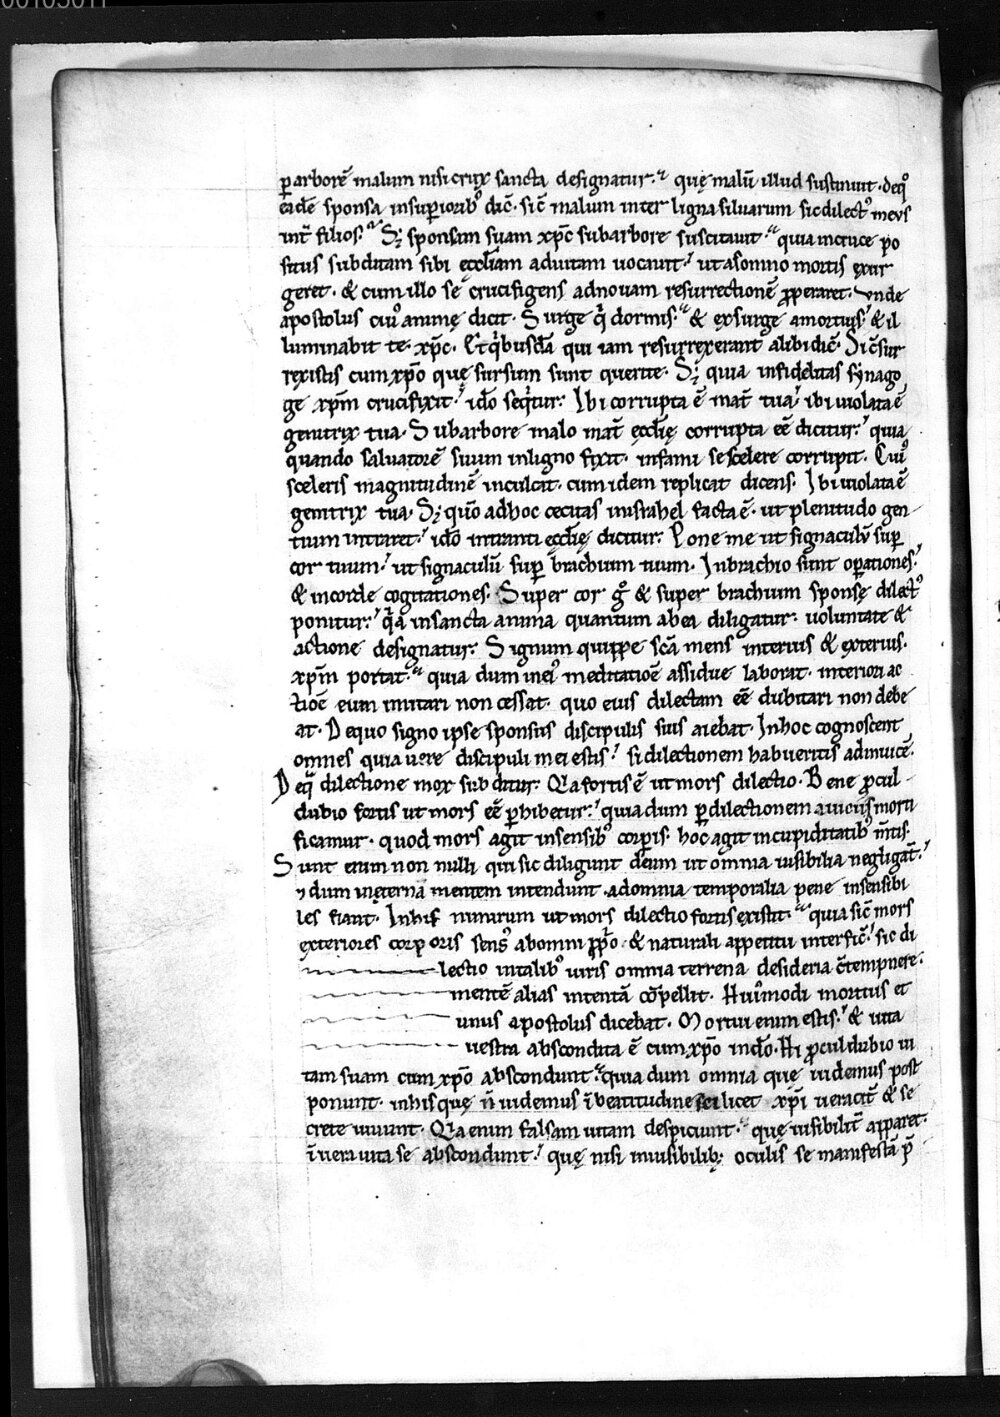 00105011
ꝑ arborē malum nisi crux sancta designatur. quę malū illud sustinuit. deq̊
eadē sponsa insuꝑiorib⁹ dic̄. sic̄ malum inter ligna siluarum sic dilect⁹ meus
int̄ filios. Sꝫ sponsam suam xp̄c sub arbore suscitauit. quia in cruce po
situs subditam sibi ęccl̄iam ad uitam uocauit. ut a somno mortis exur
geret. & cum illo se crucifigens ad nouam resurrectionē ꝓperaret. Vnde
apostolus cui⁹ animę dicit. Surge q̇ dormis. & exsurge a mortuis. & il
luminabit te xp̄c. Et q̇busdā qui iam resurrexerant alibi dic̄. Si c̄sur
rexistis cum xp̄o quę sursum sunt querite. Sꝫ quia infidelitas synago
gę xp̄m crucifixit. idō seq̇tur. Ibi corrupta ē mat̄ tua. ibi uiolata ē
genitrix tua. Sub arbore malo mat̄ ęccl̄ię corrupta eē dicitur. quia
quando saluatorē suum in ligno fixit. infami se scelere corrupit. Cui⁹
sceleris magnitudinē inculcat. cum idem replicat dicens. Ibi uiolata ē
genitrix tua. Sꝫ quō adhoc cecitas in israhel facta ē. ut plenitudo gen
tium intraret. idō intranti ęccl̄ię dicitur. Pone me ut signaculū suꝑ
cor tuum. ut signaculū suꝑ brachium tuum. In brachio sunt oꝑationes.
& in corde cogitationes. Super cor g̊ & super brachium sponsę dilect⁹
ponitur. q̄a in sancta anima quantum ab ea diligatur. uoluntate &
actione designatur. Signum quippe sc̄a mens interius & exterius.
xp̄m portat. quia dum in ei⁹ meditatiōe assidue laborat. interiori ac
tiōe eum imitari non cessat. quo eius dilectam eē dubitari non debe
at. De quo signo ipse sponsus discipulis suis aiebat. In hoc cognoscent
omnes quia uere discipuli mei estis. si dilectionem habueritis adinuicē.
De q̄ dilectione mox subditur. Q̄a fortis ē ut mors dilectio. Bene ꝓcul
dubio fortis ut mors eē ꝑhibetur. quia dum ꝑ dilectionem a uiciis morti
ficamur. quod mors agit in sensib⁹ corꝑis. hoc agit in cupiditatib⁹ m̄tis.
Sunt enim non nulli qui sic diligunt deum ut omnia uisibilia negligāt.
⁊ dum in ęterna mentem intendunt. ad omnia temporalia pene insensibi
les fiant. In his nimirum ut mors dilectio fortis existit. quia sic̄ mors
exteriores corporis sens⁹ ab omni ꝓp̄o & naturali appetitu interfic̄. sic di
lectio in talib⁹ uiris omnia terrena desideria c̄tempnere.
mentē alias intentā cōpellit. Hui⁹modi mortuis et
uiuus apostolus dicebat. Mortui enim estis. & uita
uestra abscondita ē cum xp̄o in dō. Hi ꝓcul dubio ui
tam suam cum xp̄o abscondunt. quia dum omnia quę uidemus post
ponunt. in his quę n̄ uidemus ī beatitudine scilicet xp̄i ueracit̄ & se
crete uiuunt. Q̄a enim falsam uitam despiciunt. quę uisibilit̄ apparet.
ī uera uita se abscondunt. quę nisi inuisibilibꝫ oculis se manifestā p̄